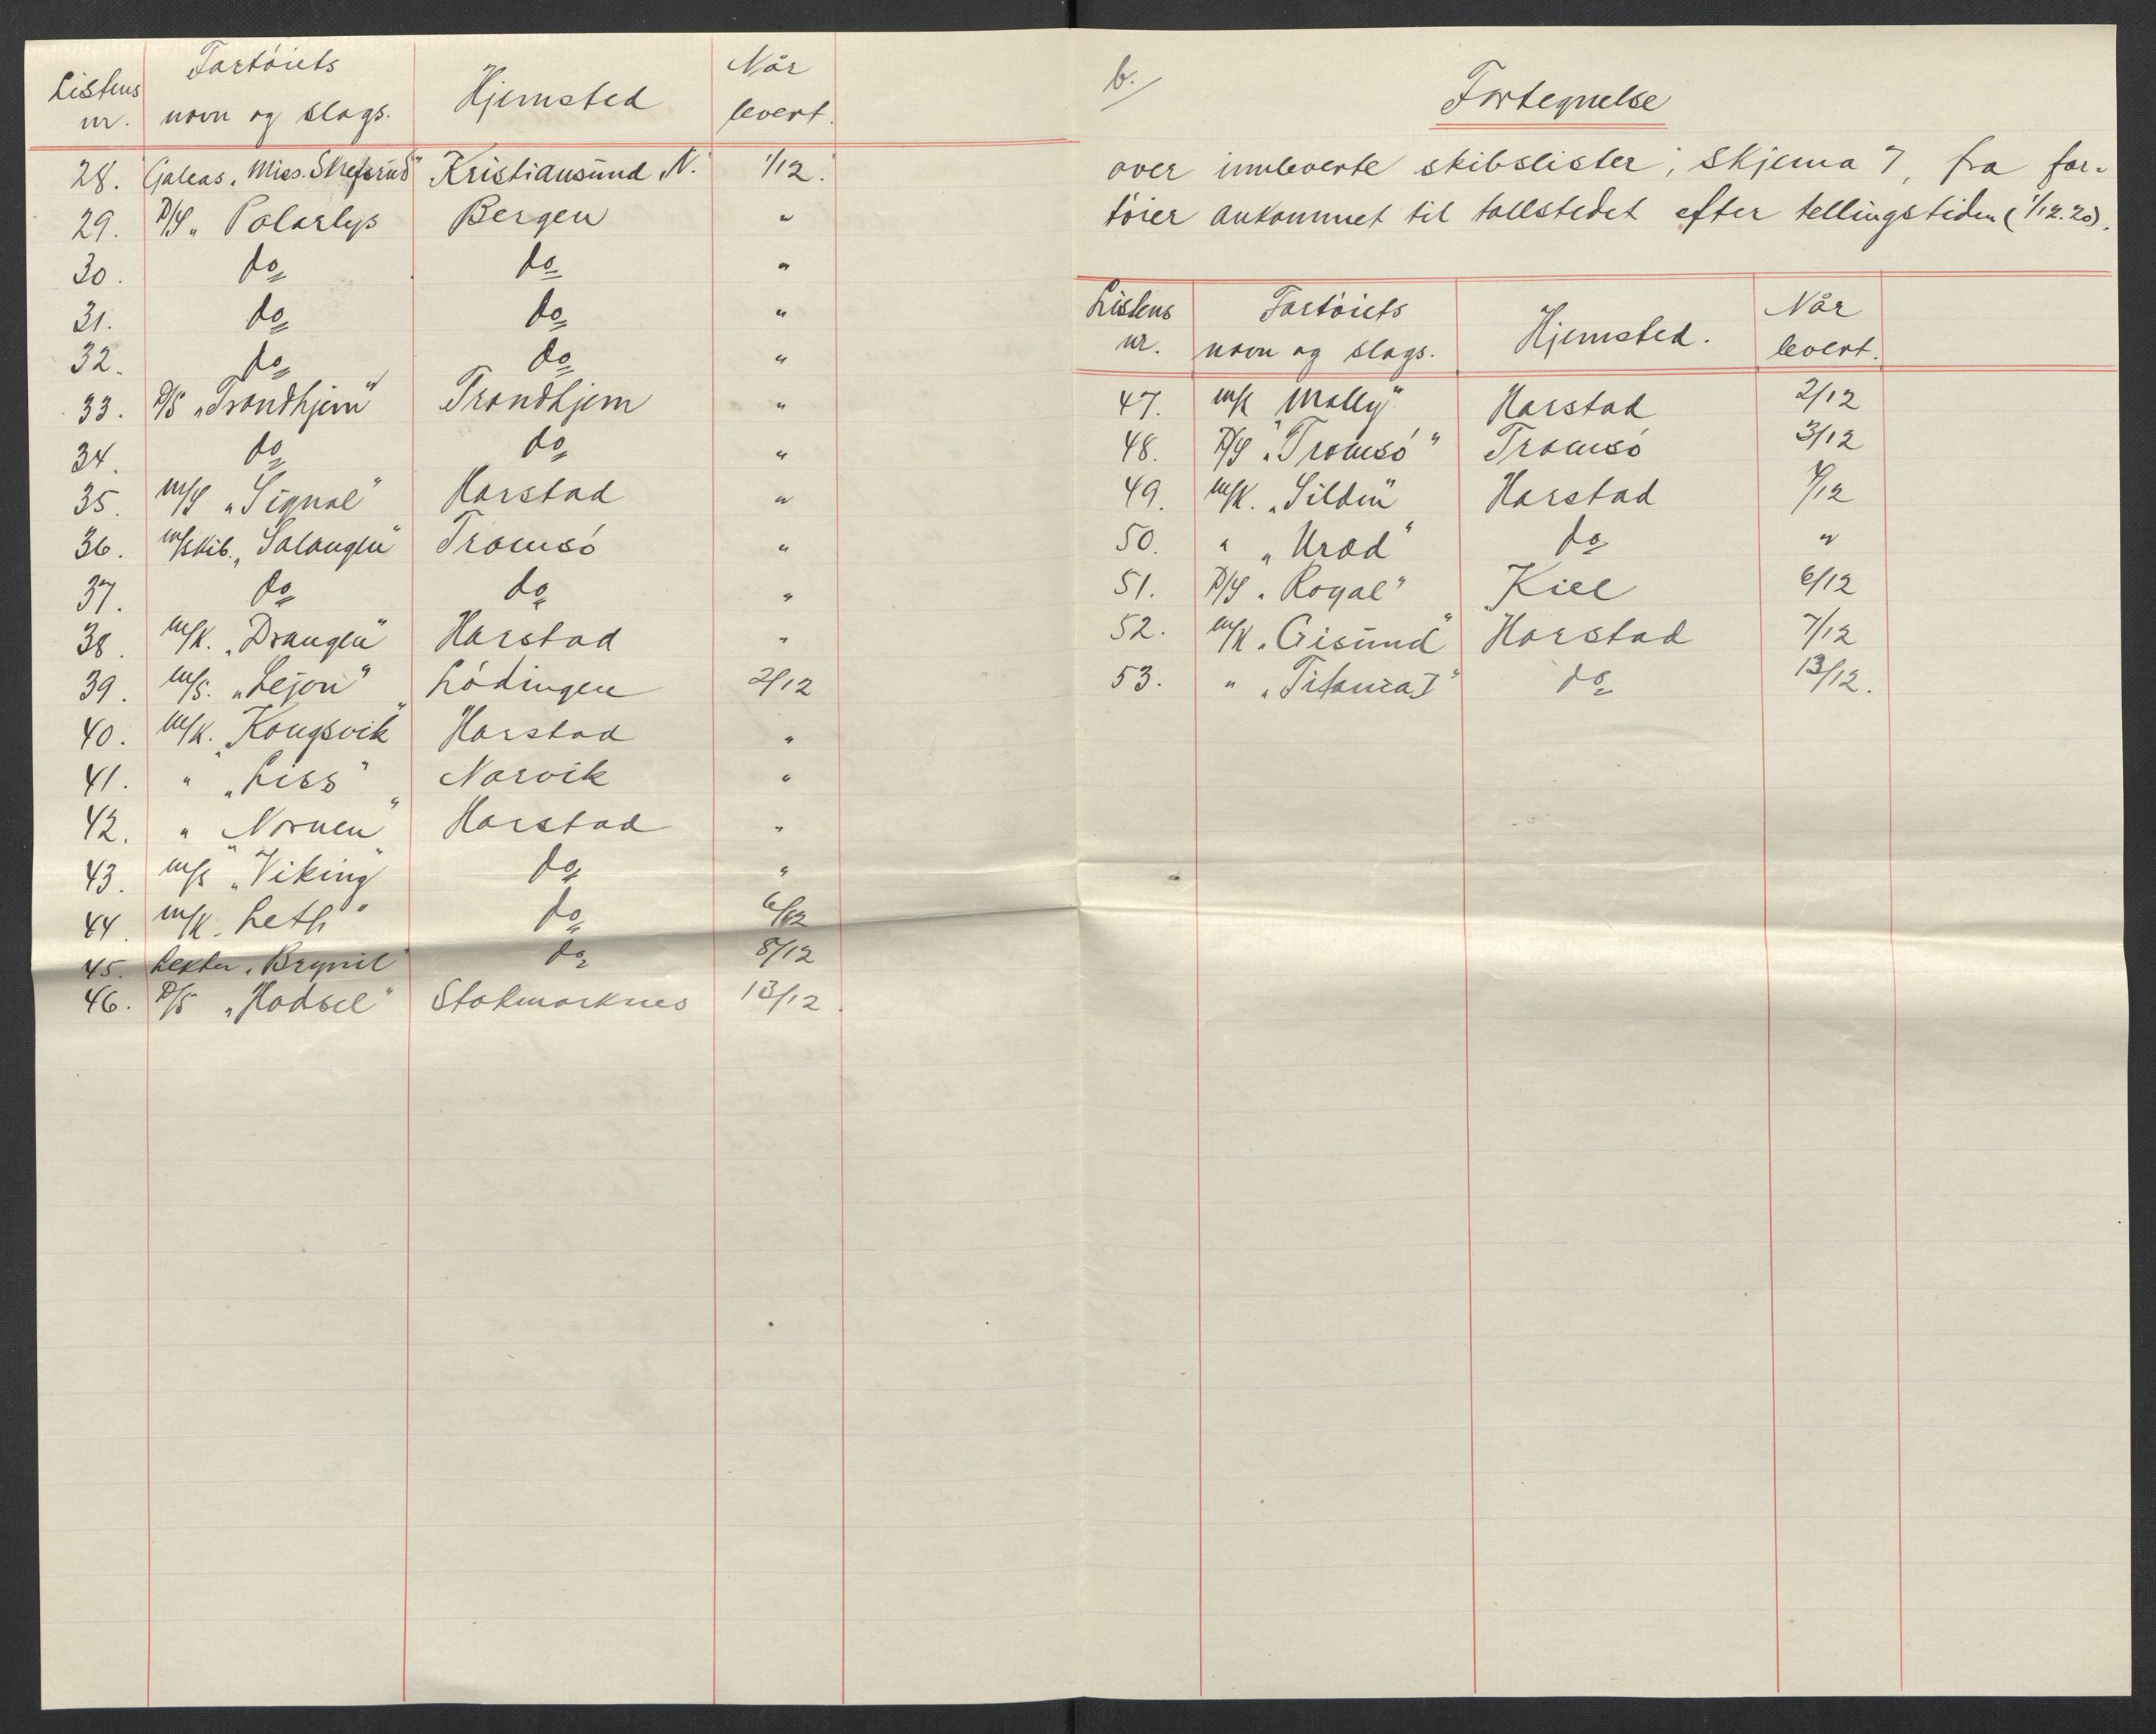 Listens nr. Fartöiets navn og slags. Hjemsted Når levert.
28. Galeas „Miss. Skrefsrud" Kristiansund N. 1/12.
29. D/S „Polarlys Bergen "
30. do do "
31. do do "
32. do do "
33. D/S „Trondhjem" Trondhjem "
34. do do "
35. m/S „Signal" Harstad "
36. m/skib. „Salangen" Tromsö "
37. do do "
38. m/k. „Drangen" Harstad "
39. m/s. „Lejon" Lödingen 2/12
40. m/k. „Kongsvik" Harstad "
41. " „Liss" Narvik "
42. " „Nornen" Harstad "
43. m/s „Viking" do "
44. m/k. „Leth" do 6/12
45. Lekter „Brynil" do 8/12
46. D/S „Hadsel" Stokmarknes 13/12.
b./
Fortegnelse
over innleverte skibslister, skjema 7, fra far-
töier ankommet til tollstedet efter tellingstiden (1/12.20).
Listens nr. Fartöiets navn og slags. Hjemsted. Når levert.
47. m/k „Molly" Harstad 2/12
48. D/S „Tromsö" Tromsö 3/12
49. m/k. „Silden" Harstad 4/12
50. " „Uræd" do "
51. D/S „Royal" Kiel 6/12
52. m/k „Gisund" Harstad 7/12
53. " „Titania I" do 13/12.